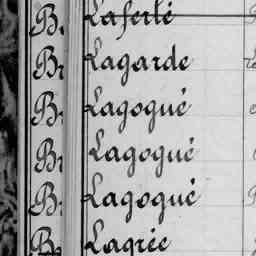 B. Laferté
Br Lagarde
Br Lagogué
Br Lagogué
Br Lagogué
Br Lagrée